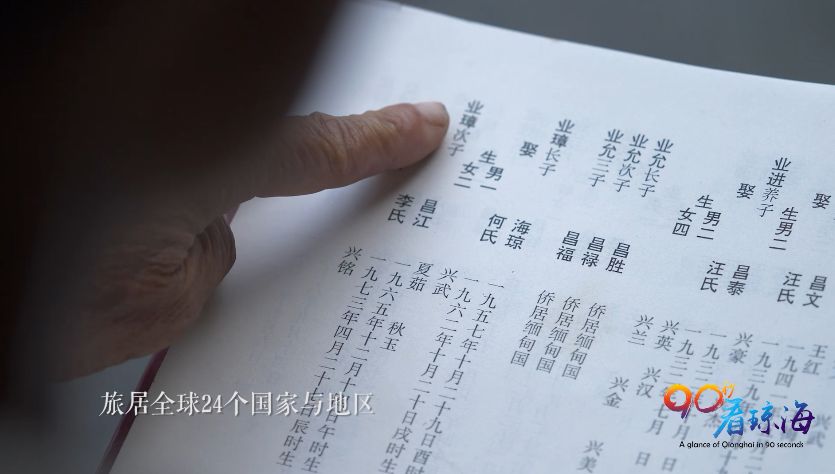 娶
昌文
生男二
汪氏
业进养子
昌泰
娶
汪氏
生男二
女四
兴豪
兴英
兴汉
兴兰
兴金
兴美
业允长子 昌胜 侨居缅甸国
业允次子 昌禄 侨居缅甸国
业允三子 昌福 侨居缅甸国
业璋长子 海琼 一九五七年十月二十九日酉时
娶 何氏 一九六二年十月二十日戌时生
生男一
女二
兴武
夏茹
秋玉
业璋次子 昌江 一九六五年十二月十
日午时生
李氏 一九七三年四月二十
日辰时生
兴铭
旅居全球24个国家与地区
90秒看琼海
A glance of Qionghai in 90 seconds